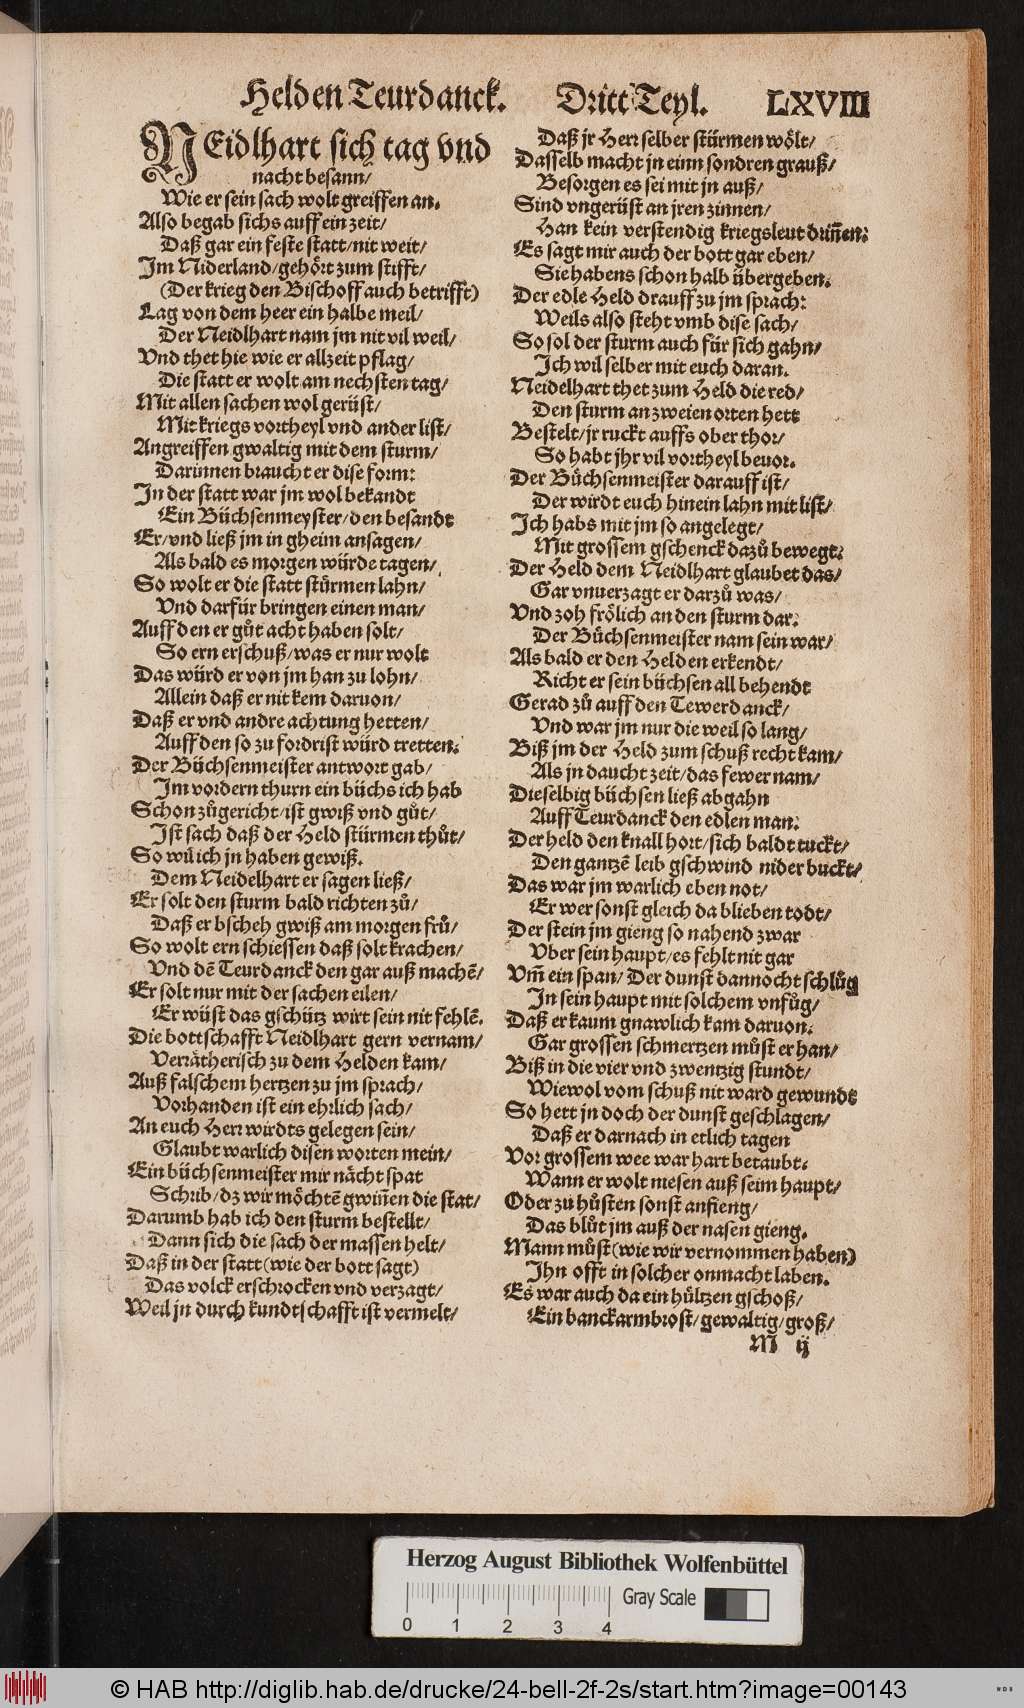 Helden Teurdanck. Dritt Teyl. LXVIII
NEidlhart sich tag vnd
nacht besann/
Wie er sein sach wolt greiffen an.
Also begab sichs auff ein zeit/
Daß gar ein feste statt/nit weit/
Im Niderland/gehört zum stifft/
(Der krieg den Bischoff auch betrifft)
Lag von dem heer ein halbe meil/
Der Neidlhart nam jm nit vil weil/
Vnd thet hie wie er allzeit pflag/
Die statt er wolt am nechsten tag/
Mit allen sachen wol gerüst/
Mit kriegs vortheyl vnd ander list/
Angreiffen gwaltig mit dem sturm/
Darinnen braucht er dise form:
In der statt war jm wol bekandt
Ein Büchsenmeyster/den besandt
Er/vnd ließ jm in gheim ansagen/
Als bald es morgen würde tagen/
So wolt er die statt stürmen lahn/
Vnd darfür bringen einen man/
Auff den er gůt acht haben solt/
So ern erschuß/was er nur wolt
Das würd er von jm han zu lohn/
Allein daß er nit kem daruon/
Daß er vnd andre achtung hetten/
Auff den so zu fordrist würd tretten.
Der Büchsenmeister antwort gab/
Im vordern thurn ein büchs ich hab
Schon zůgericht/ist gwiß vnd gůt/
Ist sach daß der Held stürmen thůt/
So wil ich jn haben gewiß.
Dem Neidelhart er sagen ließ/
Er solt den sturm bald richten zů/
Daß er bscheh gwiß am morgen frů/
So wolt ern schiessen daß solt krachen/
Vnd dē Teurdanck den gar auß machē/
Er solt nur mit der sachen eilen/
Er wüst das gschütz wirt sein nit fehlē.
Die bottschafft Neidlhart gern vernam/
Verrätherisch zu dem Helden kam/
Auß falschem hertzen zu jm sprach/
Vorhanden ist ein ehrlich sach/
An euch Herr wirdts gelegen sein/
Glaubt warlich disen worten mein/
Ein büchsenmeister mir nächt spat
Schrib/dz wir möchtē gwiñen die stat/
Darumb hab ich den sturm bestellt/
Dann sich die sach der massen helt/
Daß in der statt (wie der bott sagt)
Das volck erschrocken vnd verzagt/
Weil jn durch kundtschafft ist vermelt/
Daß jr Herr selber stürmen wölt/
Dasselb macht jn einn sondren grauß/
Besorgen es sei mit jn auß/
Sind vngerüst an jren zinnen/
Han kein verstendig kriegsleut driñen:
Es sagt mir auch der bott gar eben/
Sie habens schon halb übergeben.
Der edle Held drauff zu jm sprach:
Weils also steht vmb dise sach/
So sol der sturm auch für sich gahn/
Ich wil selber mit euch daran.
Neidelhart thet zum Held die red/
Den sturm an zweien orten hett
Bestelt/jr ruckt auffs ober thor/
So habt jhr vil vortheyl beuor.
Der Büchsenmeister darauff ist/
Der wirdt euch hinein lahn mit list/
Ich habs mit jm so angelegt/
Mit grossem gschenck dazů bewegt.
Der Held dem Neidlhart glaubet das/
Gar vnuerzagt er darzů was/
Vnd zoh frölich an den sturm dar.
Der Büchsenmeister nam sein war/
Als bald er den Helden erkendt/
Richt er sein büchsen all behendt
Gerad zů auff den Tewerdanck/
Vnd war jm nur die weil so lang/
Biß jm der Held zum schuß recht kam/
Als jn daucht zeit/das fewer nam/
Dieselbig büchsen ließ abgahn
Auff Teurdanck den edlen man:
Der held den knall hort/sich baldt tuckt/
Den gantzē leib gschwind nider buckt/
Das war jm warlich eben not/
Er wer sonst gleich da blieben todt/
Der stein jm gieng so nahend zwar
Vber sein haupt/es fehlt nit gar
Vm̄ ein span/ Der dunst dannocht schlůg
In sein haupt mit solchem vnfůg/
Daß er kaum gnawlich kam daruon.
Gar grossen schmertzen můst er han/
Biß in die vier vnd zwentzig stundt/
Wiewol vom schuß nit ward gewundt
So hett jn doch der dunst geschlagen/
Daß er darnach in etlich tagen
Vor grossem wee war hart betaubt.
Wann er wolt niesen auß seim haupt/
Oder zu hůsten sonst anfieng/
Das blůt jm auß der nasen gieng.
Mann můst (wie wir vernommen haben)
Ihn offt in solcher onmacht laben.
Es war auch da ein hültzen gschoß/
Ein banckarmbrost/gewaltig/groß/
M ij
Herzog August Bibliothek Wolfenbüttel
Gray Scale
0 1 2 3 4
© HAB http://diglib.hab.de/drucke/24-bell-2f-2s/start.htm?image=00143